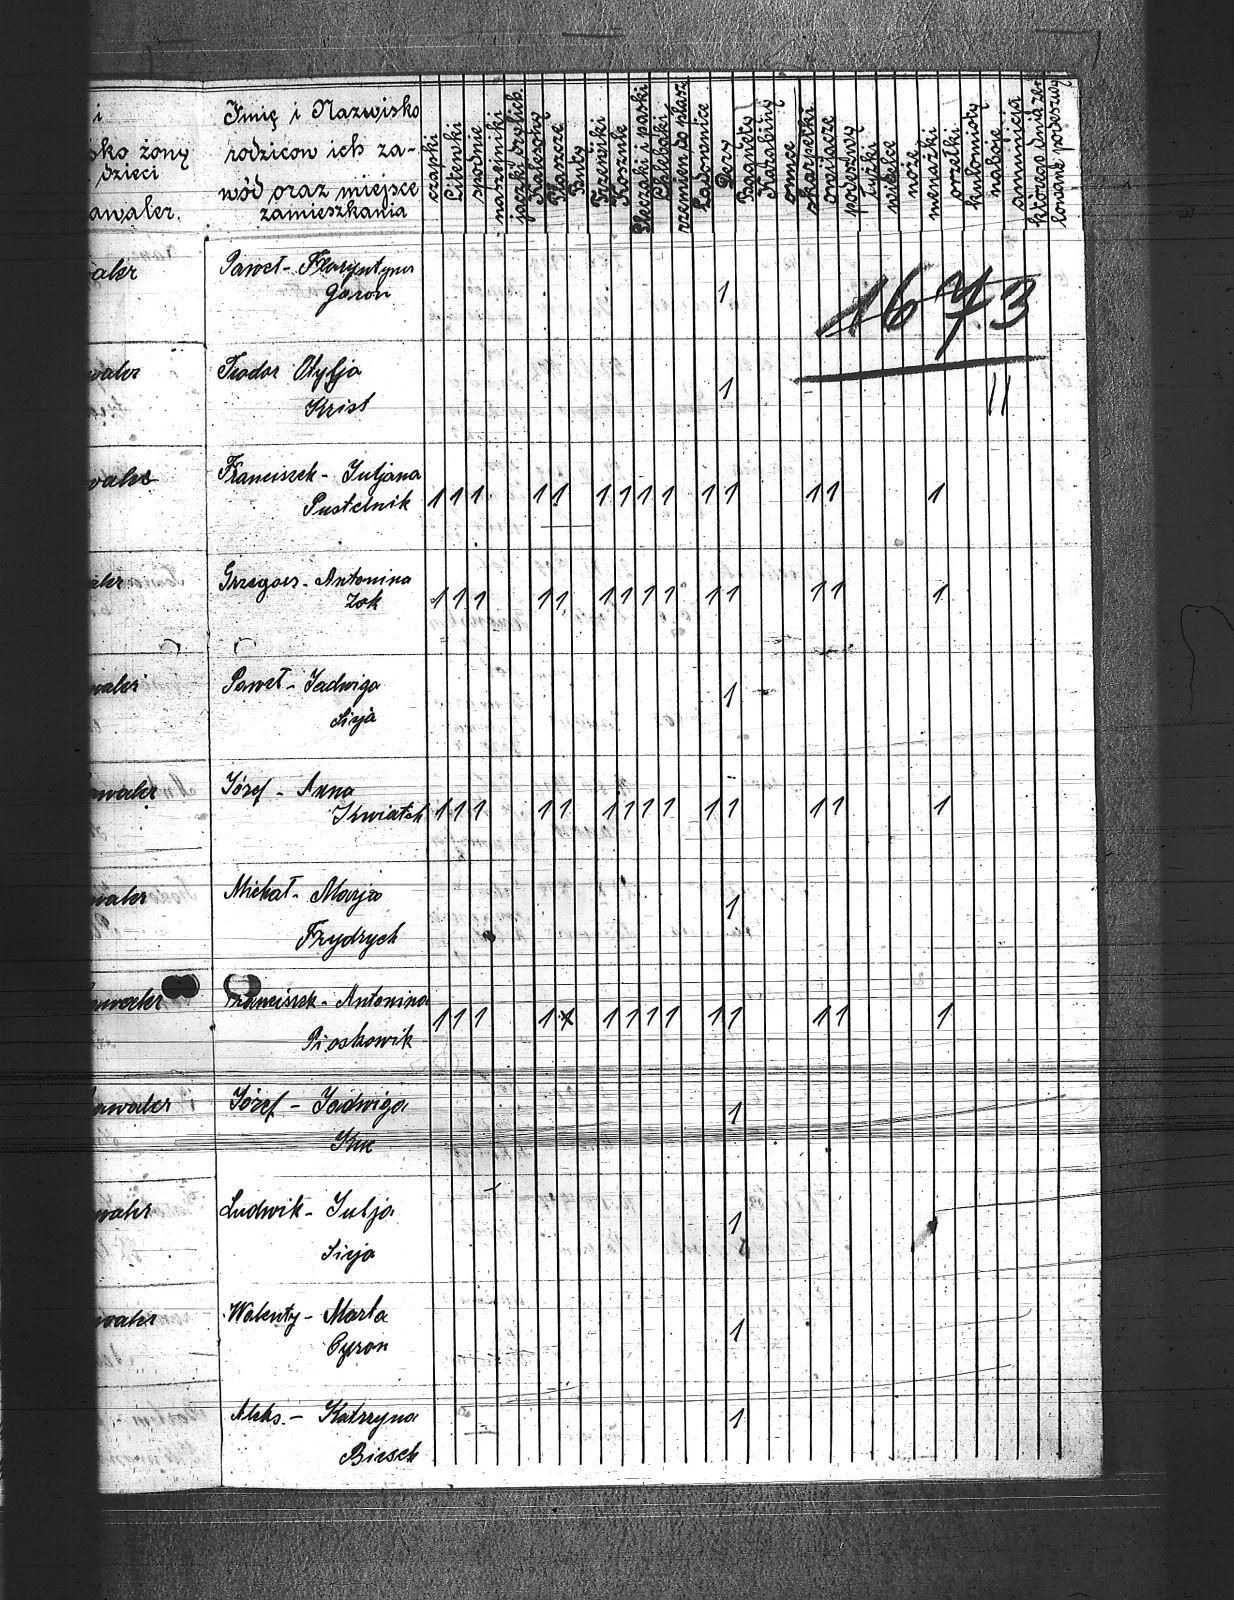 i
sko żony
dzieci
awaler.
Imię i Nazwisko
rodziców ich za-
wód oraz miejsce
zamieszkania
czapki
Litewki
spodnie
naszeiniki
Kalesony
Płaszcze
Buty
Trzewiki
Koszule
Plecaki i paski
Chlebaki
rzemien do płasz
Ładownice
Derz
Bagnety
Karabiny
onuce
skarpetki
owijacze
łyżki
widelce
noże
menażki
orzełki
kulomioty
naboje
amunicja
1673
waler
Paweł - Florentyna
Gason
1
waler
Teodor Otylja
Krist
1
11
waler
Franciszek - Juljana
Pustelnik
1 1 1 1 1 1 1 1 1 1 1 1 1 1
aler
Grzegorz - Antonina
Żok
1 1 1 1 1 1 1 1 1 1 1 1 1 1
waler
Paweł - Jadwiga
Sieja
1
awaler
Józef - Anna
Kwiatek
1 1 1 1 1 1 1 1 1 1 1 1 1 1
waler
Michał - Marja
Frydrych
1
awaler
Franciszek - Antonina
Pioskowik
1 1 1 1 1 1 1 1 1 1 1 1 1 1
awaler
Józef - Jadwiga
Kuc
1
waler
Ludwik - Julja
Sieja
1
waler
Walenty - Marta
Cyron
1
Aleks. - Katrzyna
Biesek
1